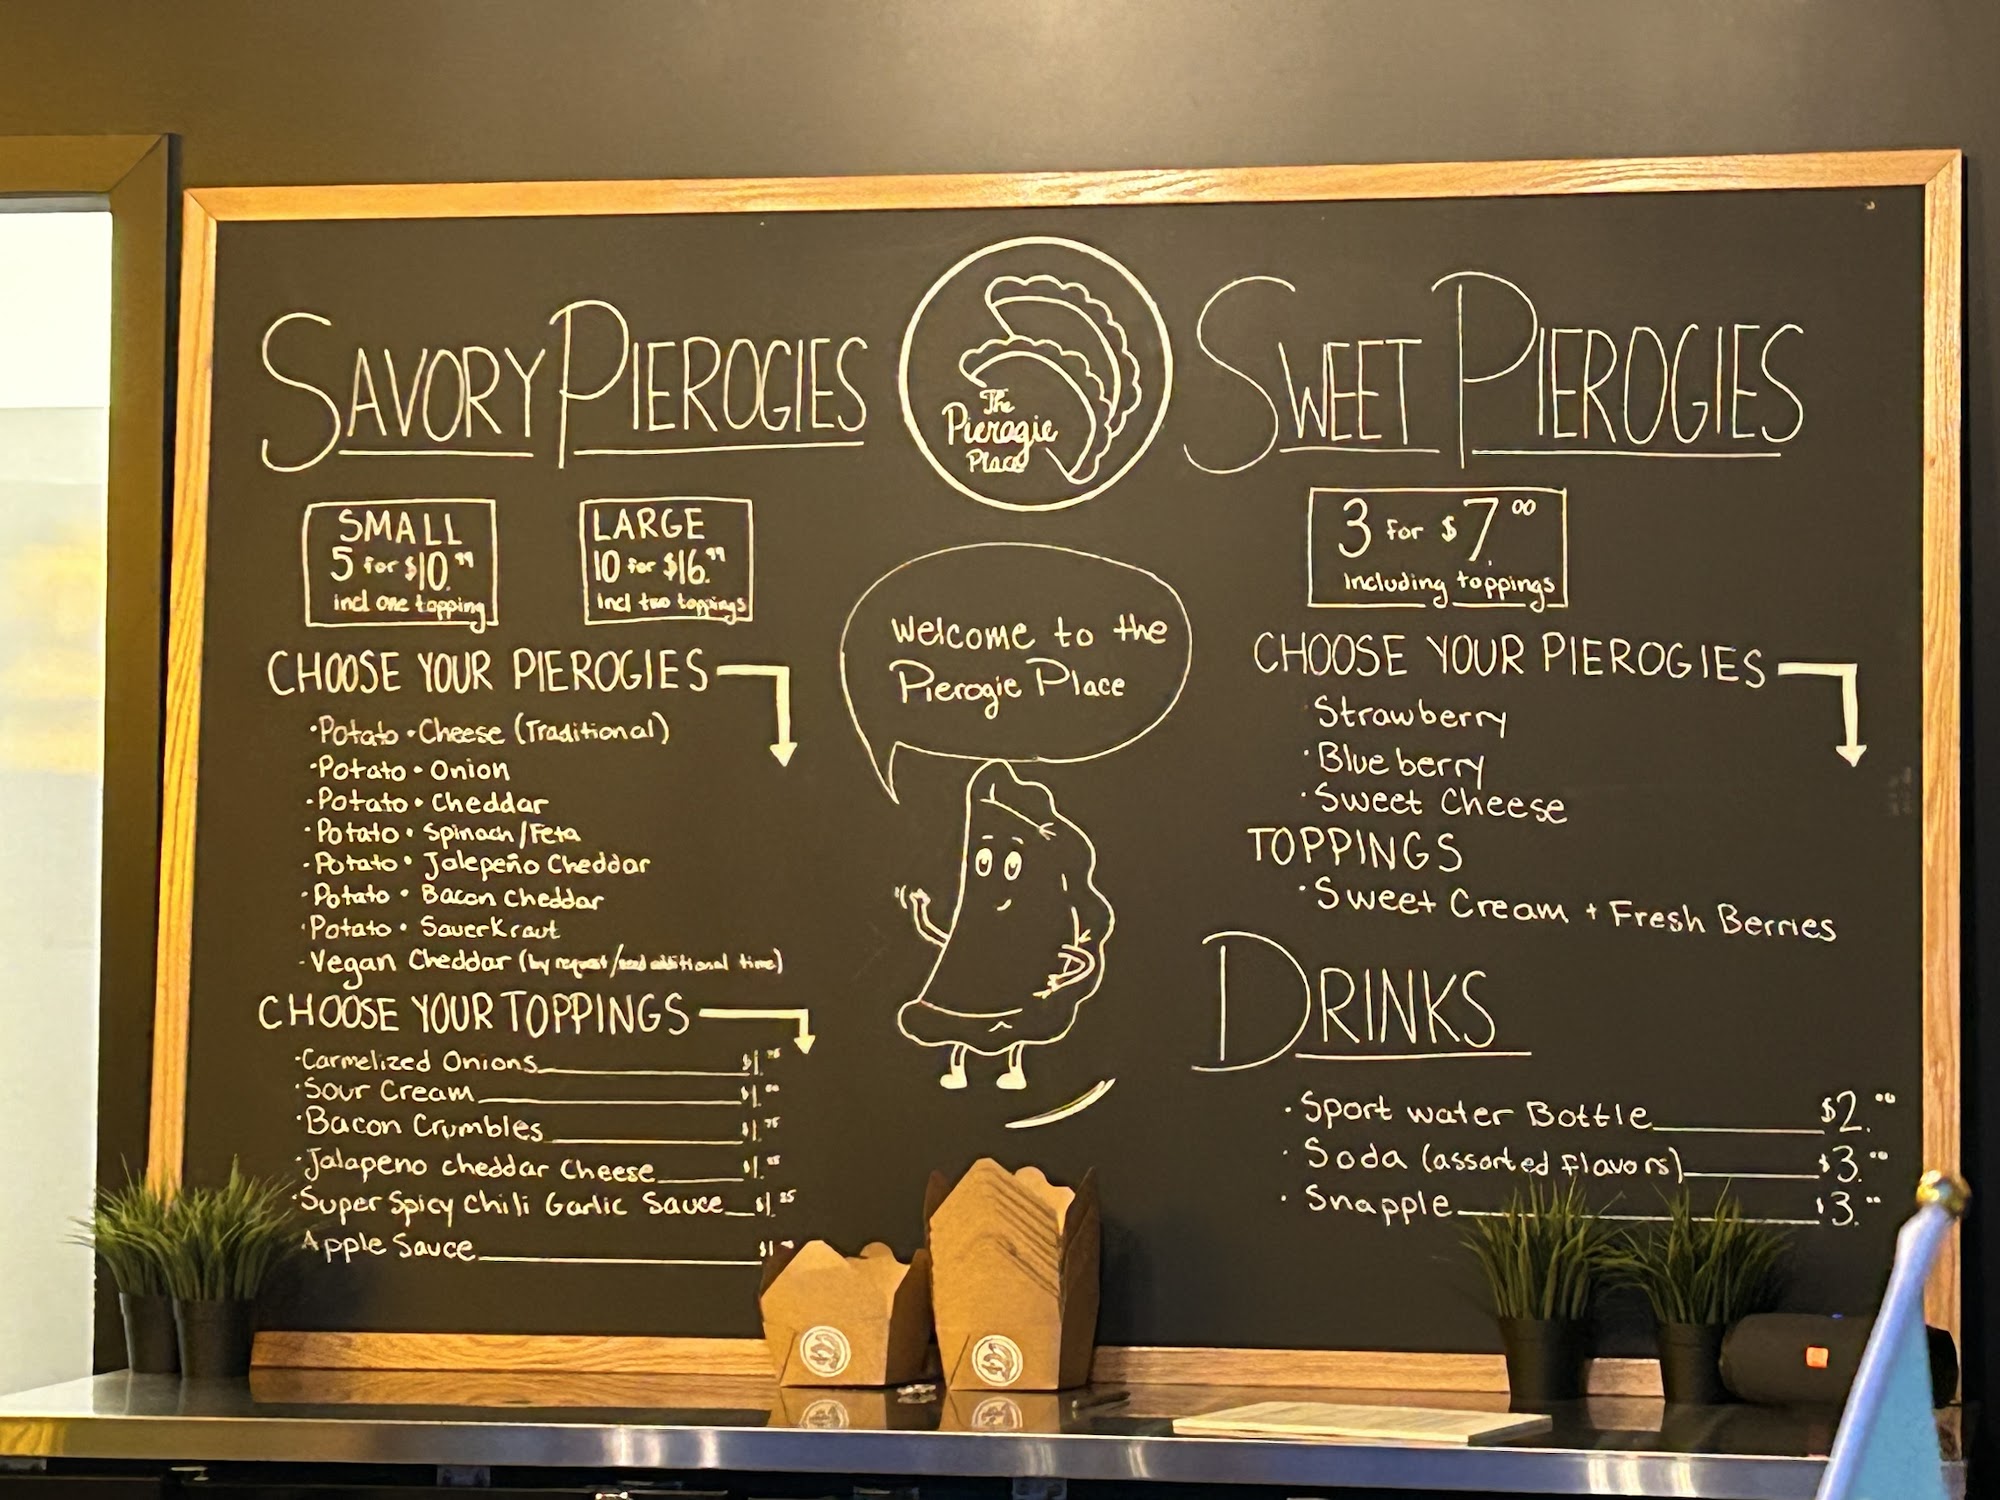 SAVORY PIEROGIES
SMALL
5 for $10.99
incl one topping
LARGE
10 for $16.99
incl two toppings
CHOOSE YOUR PIEROGIES
·Potato·Cheese (Traditional)
·Potato·Onion
·Potato·Cheddar
·Potato·Spinach/Feta
·Potato·Jalepeño Cheddar
·Potato·Bacon Cheddar
·Potato·Sauerkraut
·Vegan Cheddar (by request/need additional time)
CHOOSE YOUR TOPPINGS
·Carmelized Onions $1.
·Sour Cream $1.00
·Bacon Crumbles $1.75
·Jalapeno cheddar cheese $1.
·Super Spicy Chili Garlic Sauce $1.25
Apple Sauce $1
The
Pierogie
Place
Welcome to the
Pierogie Place
SWEET PIEROGIES
3 for $7.00
including toppings
CHOOSE YOUR PIEROGIES
·Strawberry
·Blueberry
·Sweet Cheese
TOPPINGS
·Sweet Cream + Fresh Berries
DRINKS
·Sport water Bottle $2.00
·Soda (assorted flavors) $3.00
·Snapple $3.00